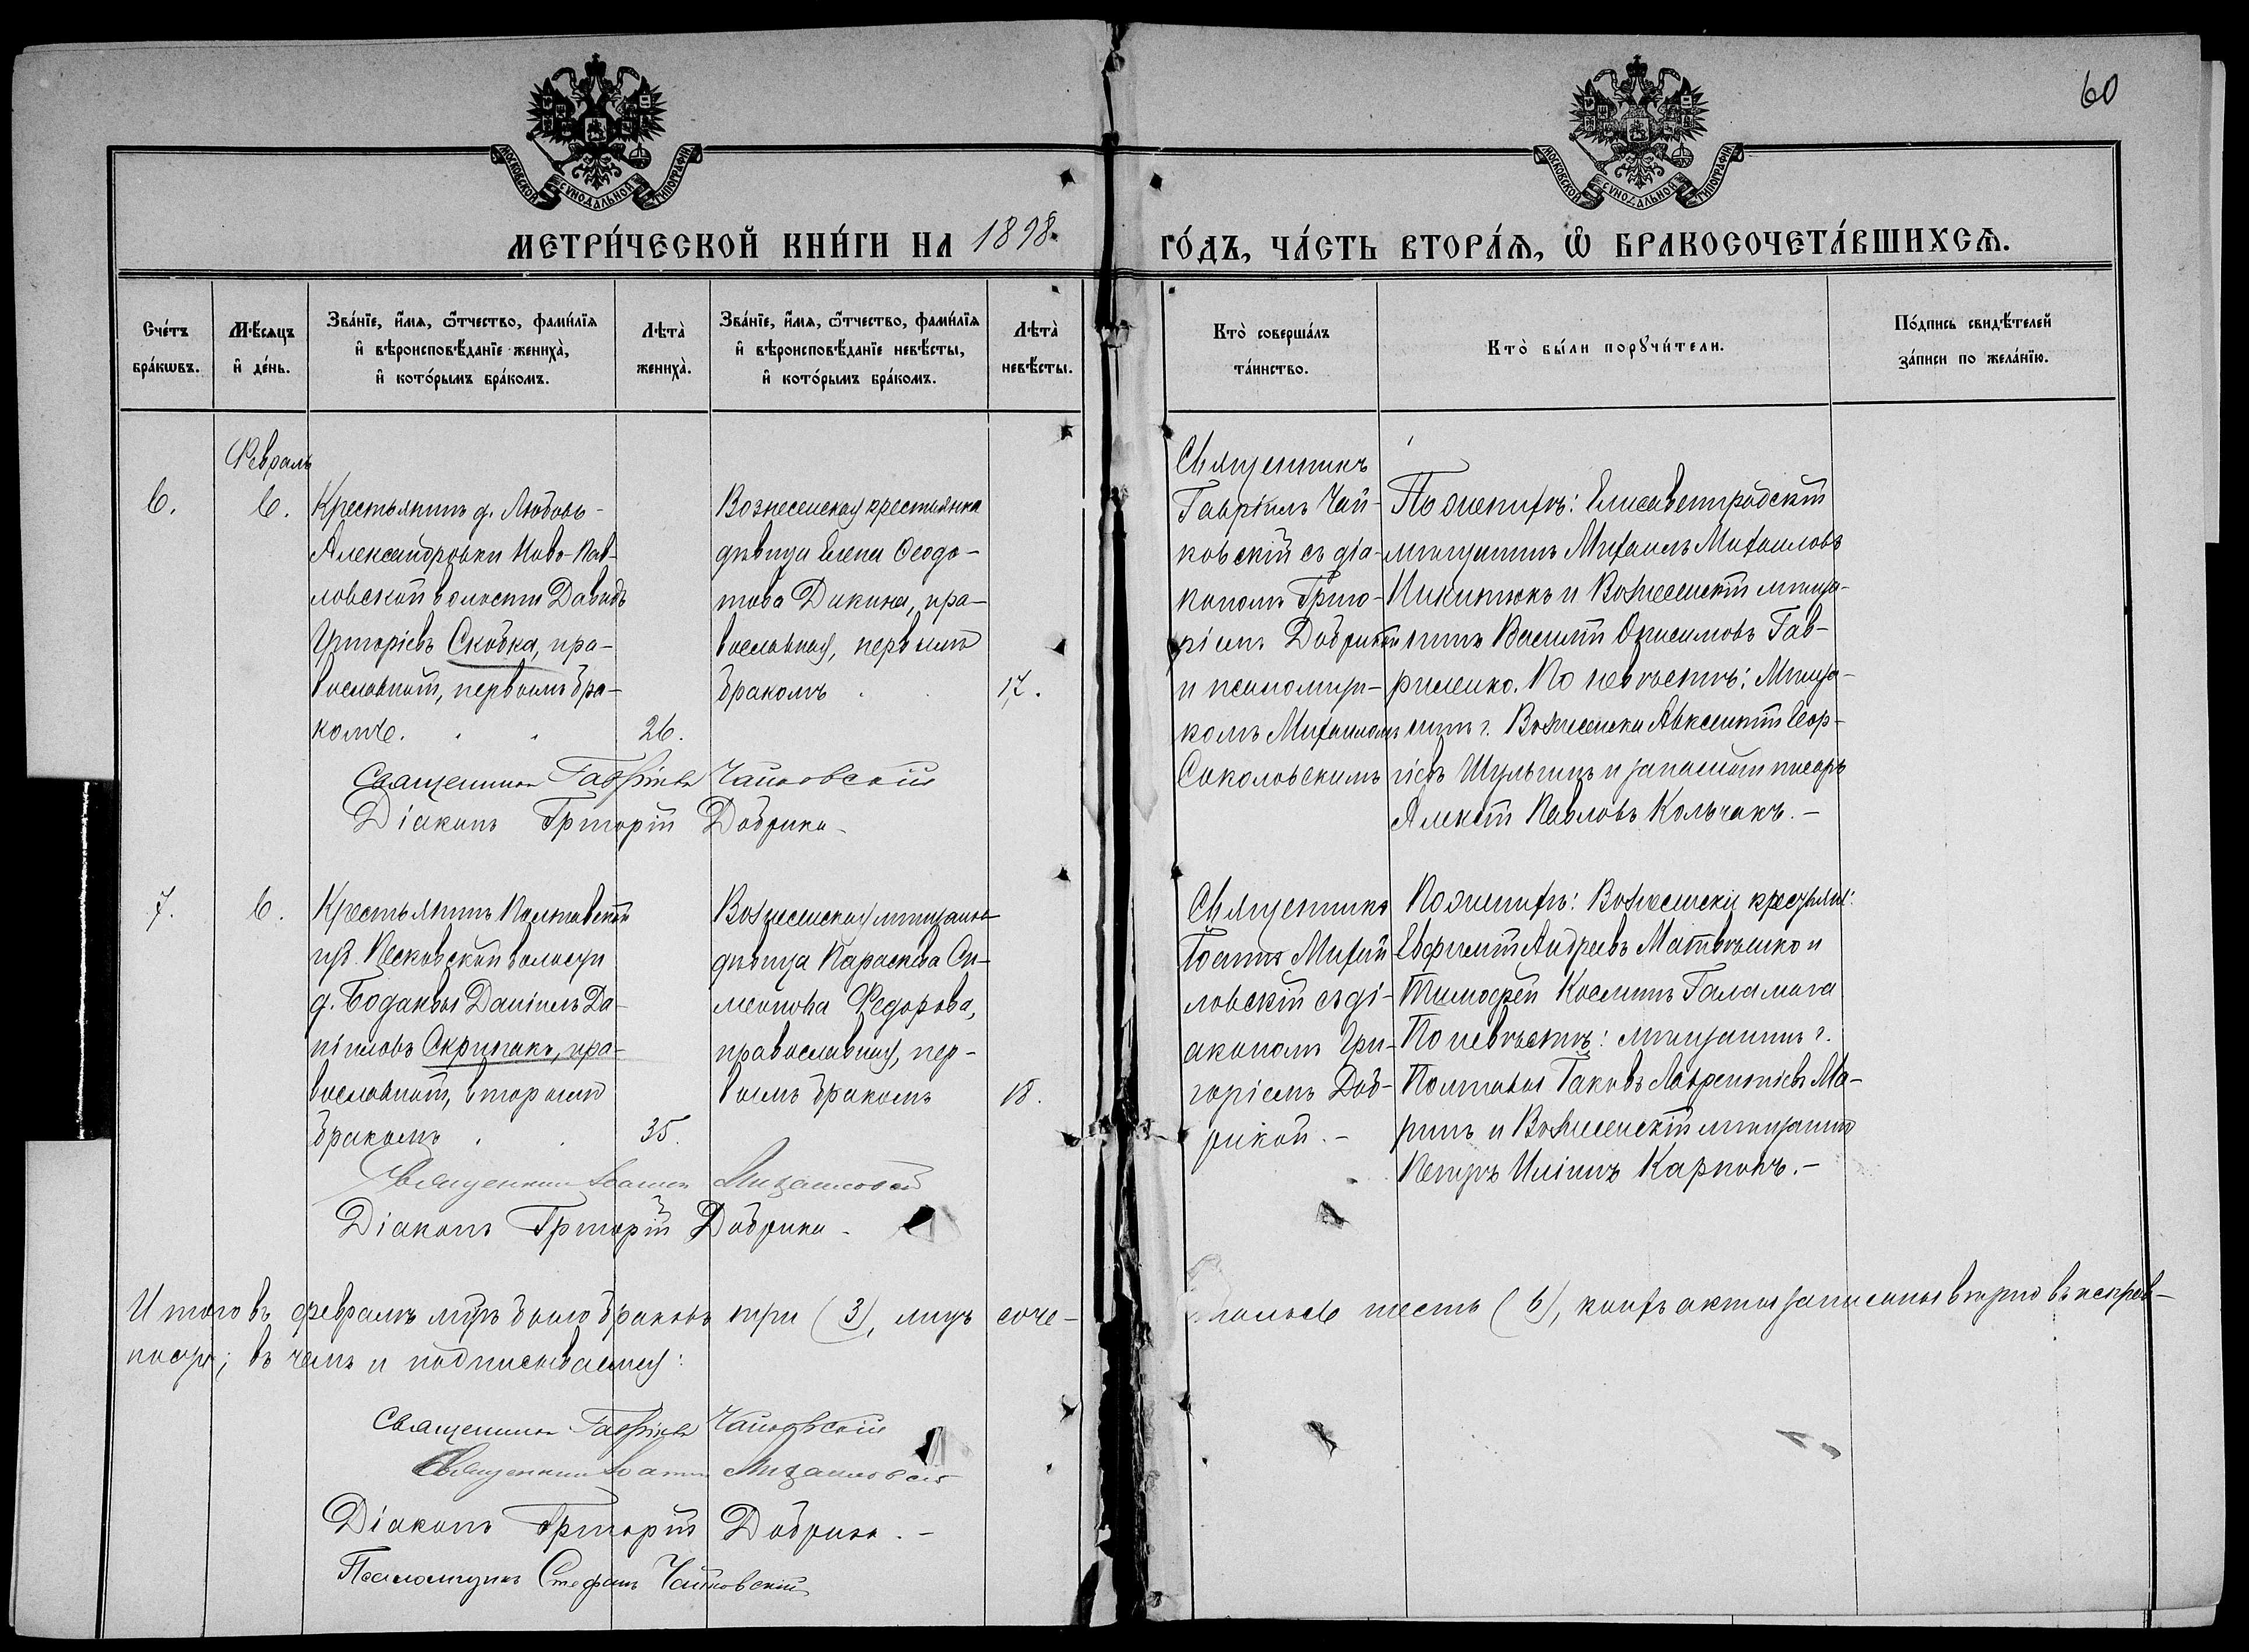 60
МОСКОВСКОЙ СУНОДАЛЬНОЙ ТИПОГРАФІИ
МОСКОВСКОЙ СУНОДАЛЬНОЙ ТИПОГРАФІИ
МЕТРИ́ЧЕСКОЙ КНИ́ГИ НА 1898
ГО́ДЪ, ЧА́СТЬ ВТОРА́Я, Ѽ БРАКОСОЧЕТА́ВШИХСЯ.
Сче́тъ
бра́кѡвъ.
Мѣ́сяцъ
и҆ де́нь.
Зва́нїе, и҆́мя, ѻ҆́тчество, фами́лїя
и҆ вѣроисповѣ́данїе жениха̀,
и҆ кото́рымъ бра́комъ.
Лѣта̀
жениха̀.
Зва́нїе, и҆́мя, ѻ҆́тчество, фами́лїя
и҆ вѣроисповѣ́данїе невѣ́сты,
и҆ кото́рымъ бра́комъ.
Лѣта̀
невѣ́сты.
Кто̀ соверша́лъ
та́инство.
Кто̀ бы́ли порꙋчи́тели.
По́дпись свидѣ́телей
за́писи по жела́нїю.
Февраль
6.
6.
Крестьянинъ д. Любовь-
Александровки Ново-Пав-
ловской волости Давидъ
Григоріевъ Скобка, пра-
вославный, первымъ бра-
комъ.
26.
Вознесенская крестьянка
дѣвица Елена Ѳеодо-
това Дикина, пра-
вославная, первымъ
бракомъ
17.
Священникъ
Гавріилъ Чай-
ковскій съ діа-
кономъ Григо-
ріемъ Добрикой
и псаломщи-
комъ Михаиломъ
Соколовскимъ
По женихѣ: Елисаветградскій
мѣщанинъ Михаилъ Михаиловъ
Никитюкъ и Вознесенскій мѣща-
нинъ Василій Онисимовъ Гав-
риленко. По невѣстѣ: Мѣща-
нинъ г. Вознесенска Авксентій Геор-
гіевъ Шульгинъ и запасный писарь
Алексѣй Павловъ Кольчакъ. –
Священникъ Гавріилъ Чайковскій
Діаконъ Григорій Добрика –
7.
6.
Крестьянинъ Полтавской
губ. Песковской волости
д. Бодаквы Даніилъ Да-
ніиловъ Скрипакъ, пра-
вославный, вторымъ
бракомъ
35.
Вознесенская мѣщанка
дѣвица Параскева Си-
меонова Федорова,
православная, пер-
вымъ бракомъ
18.
Священникъ
Іоаннъ Михай-
ловскій съ ді-
акономъ Гри-
горіемъ Доб-
рикой. –
По женихѣ: Вознесенскіе крестьяне:
Евфимій Андреевъ Матвѣенко и
Тимофей Косминъ Галамага
По невѣстѣ: мѣщанинъ г.
Полтавы Іаковъ Лаврентіевъ Ма-
ринъ и Вознесенскій мѣщанинъ
Петръ Иліинъ Карпокъ. –
Священникъ Іоаннъ Михайловскій
Діаконъ Григорій Добрика –
Итого въ февралѣ мѣсяцѣ было браковъ три (3), лицъ соче-
талось шесть (6), коихъ акты записаны вѣрно въ исправ-
ности; въ чемъ и подписываемся:
Священникъ Гавріилъ Чайковскій
Священникъ Іоаннъ Михайловскій
Діаконъ Григорій Добрика. –
Псаломщикъ Стефанъ Чайковскій